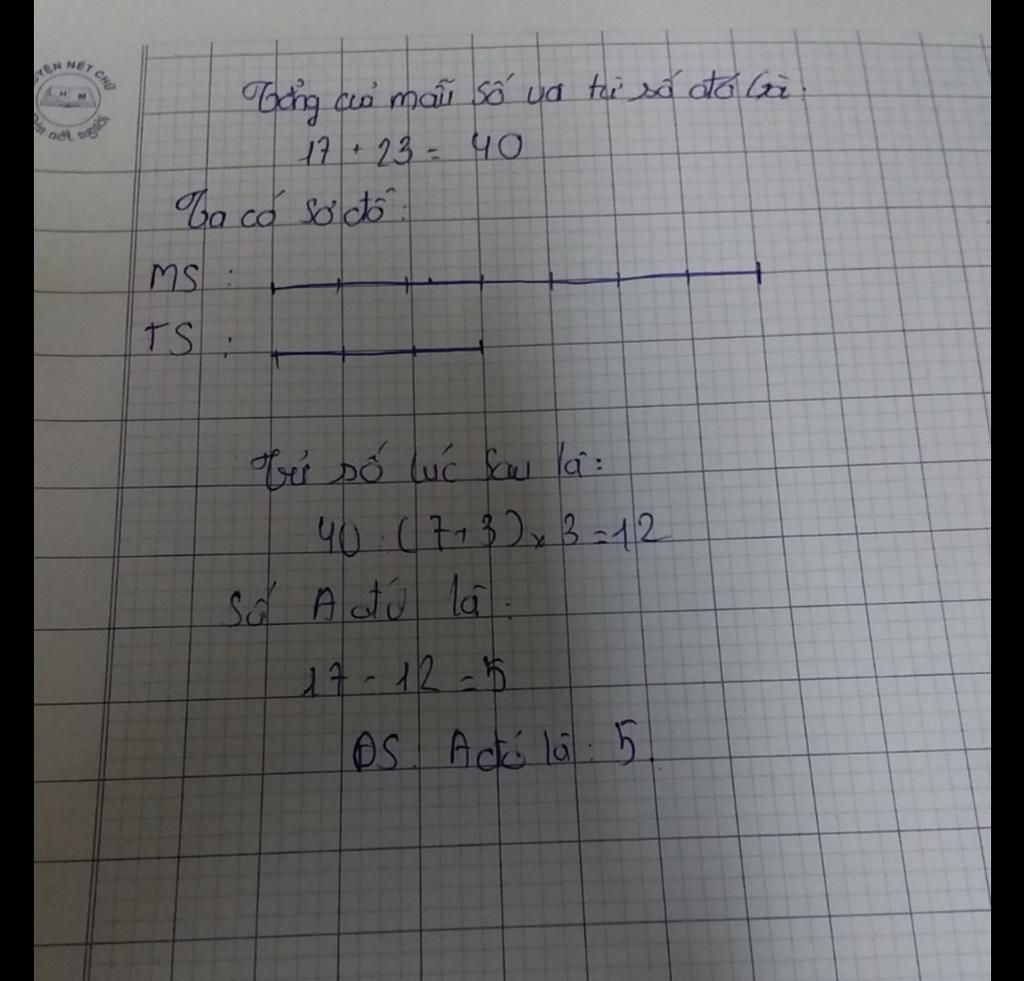 LUYỆN NÉT CHỮ
HM
Rèn nết người
Tổng của mẫu số và tử số đó là:
17 + 23 = 40
Ta có sơ đồ:
MS :
TS :
Tử số lúc sau là:
40 : (7+3) x 3 = 12
Số A đó là:
17 - 12 = 5
ĐS: A đó là: 5.